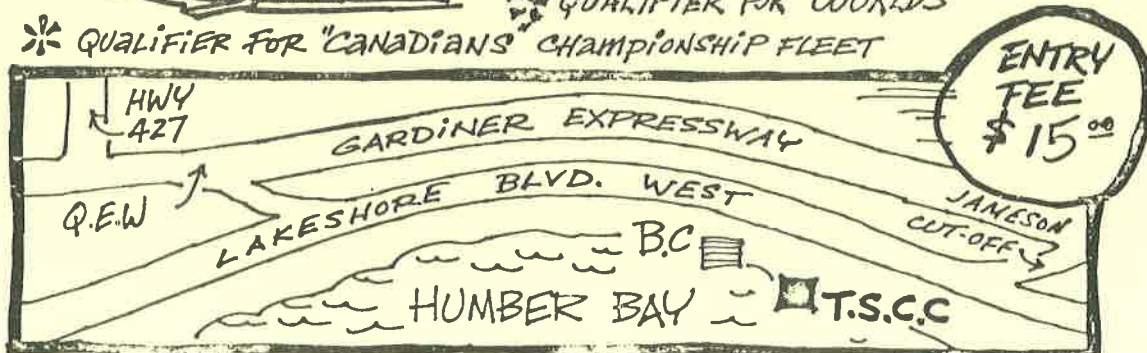 QUALIFIER FOR WORLDS
* QUALIFIER FOR "CANADIANS" CHAMPIONSHIP FLEET
ENTRY
FEE
$15.00
HWY
427
GARDINER EXPRESSWAY
Q.E.W
LAKESHORE BLVD. WEST
JAMESON
CUT-OFF
B.C
HUMBER BAY
T.S.C.C